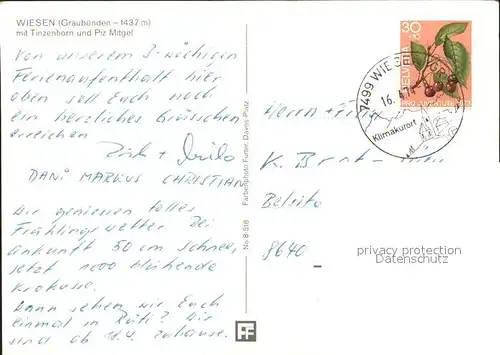 WIESEN (Graubünden – 1437 m)
mit Tinzenhorn und Piz Mitgel
Von unserem 3-wöchigen
Ferienaufenthalt hier
oben soll Euch noch
ein herzliches Grüsschen
erreichen
DANI MARKUS CHRISTIAN
Wir geniessen tolles
Frühlingswetter. Bei
Ankunft 50 cm Schnee,
jetzt 1000 blühende
Krokusse.
Wann sehen wir Euch
einmal in Rüti? Wir
sind ab 18.4. zuhause.
Farbenphoto Furter, Davos-Platz
No 8-516
FF
30
HELVETIA
PRO JUVENTUTE
7499 WIESEN
16.4.
Klimakurort
Herrn + Frau
K.
Belsito
8640
privacy protection
PADCAAM Services